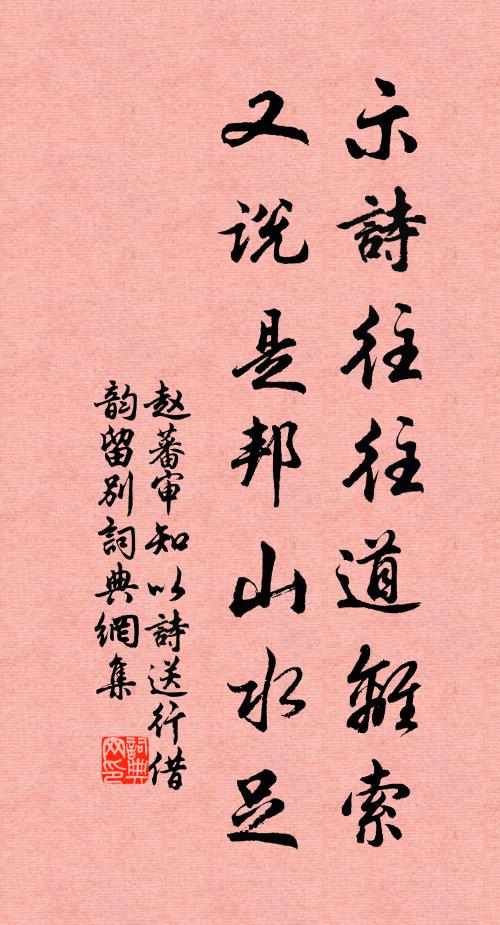 示詩往往道離索
又说是邦山水足
赵蕃审知以詩送行借
韵留别詞典網集
詞典网印